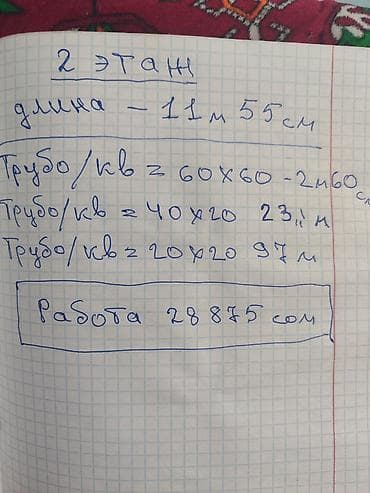 2 этаж
длина - 11м 55см
Трубо/кв = 60х60 - 2м60см
Трубо/кв = 40х20 23 м
Трубо/кв = 20х20 97 м
Работа 28875 сом